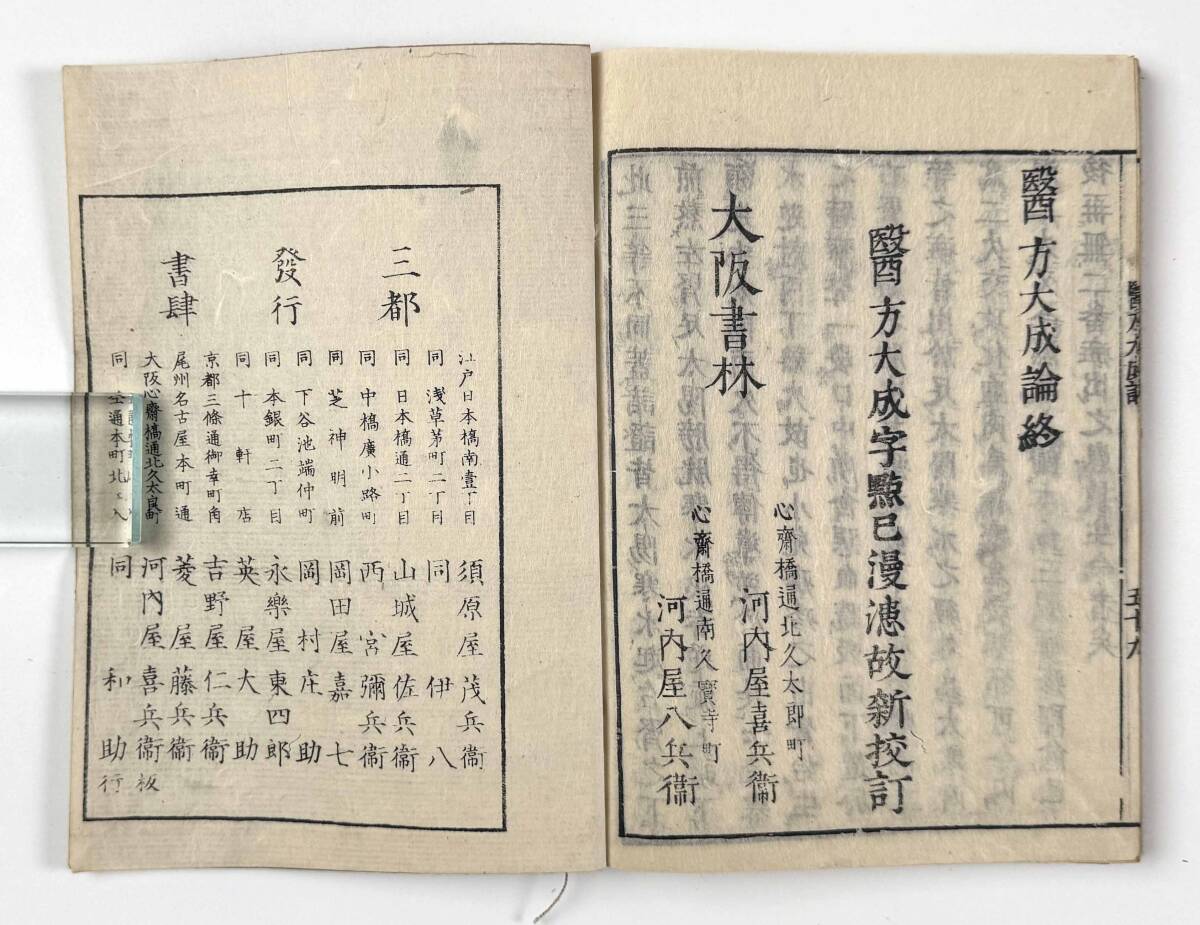 醫方大成論終
醫方大成字㸃已漫漶故新挍訂
大阪書林
心齋橋通北久太郎町
河内屋喜兵衞
心齋橋通南久寶寺町
河内屋八兵衞
五十九
三都
發行
書肆
江戸日本橋南壹丁目 須原屋茂兵衞
同 淺草茅町二丁目 同 伊八
同 日本橋通二丁目 山城屋佐兵衞
同 中橋廣小路町 西宮彌兵衞
同 芝神明前 岡田屋嘉七
同 下谷池端仲町 岡村庄助
同 本銀町二丁目 永樂屋東四郎
同 十軒店 英大助
京都三條通御幸町角 吉野屋仁兵衞
尾州名古屋本町通 菱屋藤兵衞
大阪心齋橋通北久太良町 河内屋喜兵衞板
同 通本町北入 同 和助行